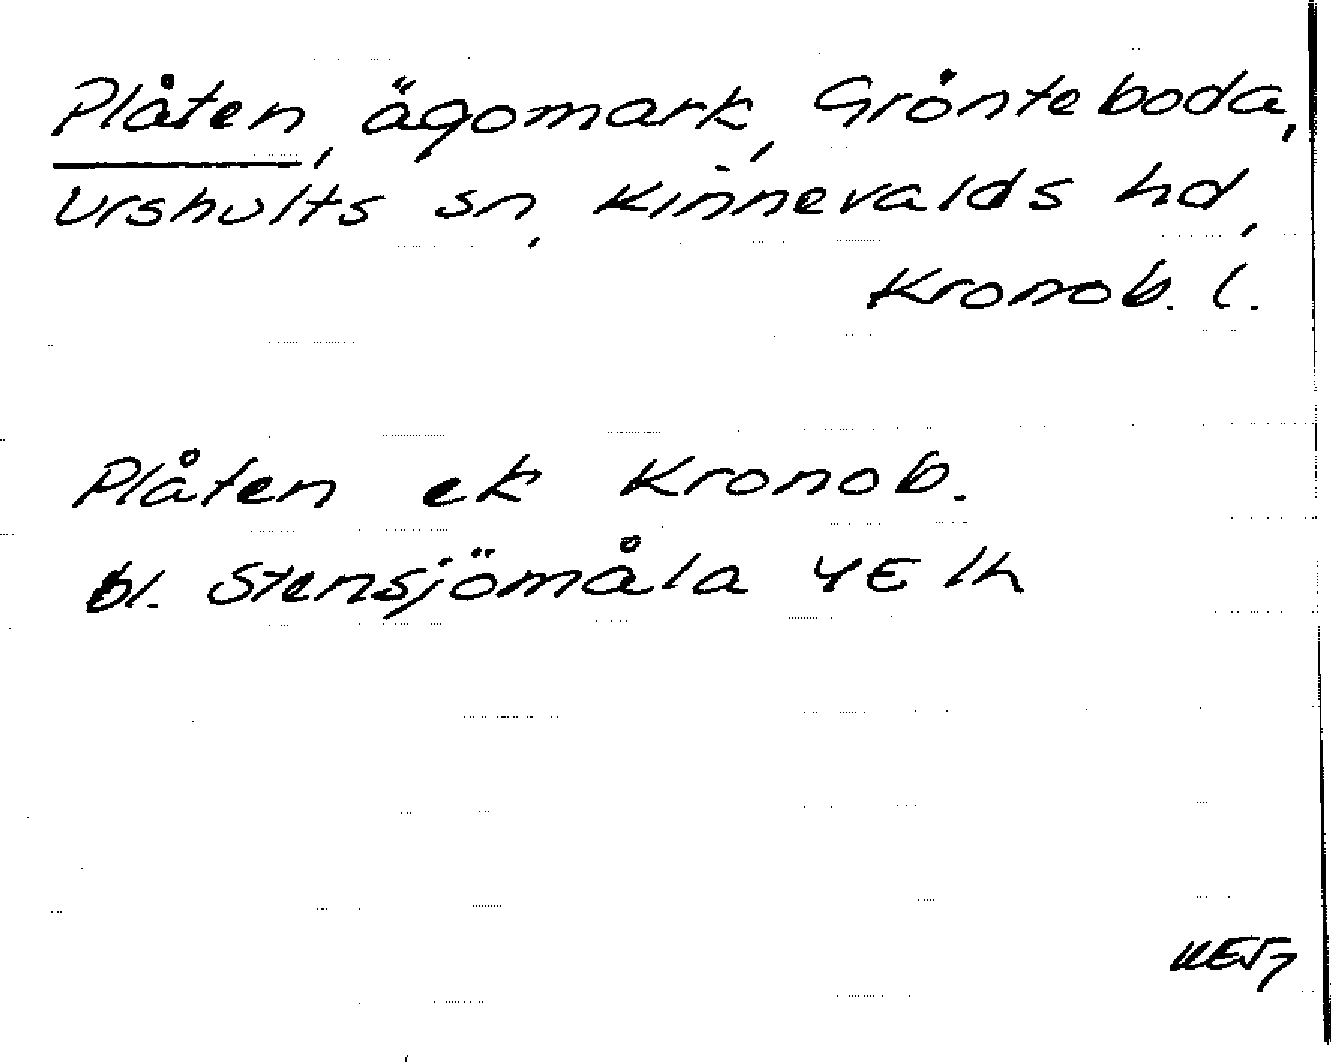 Plåten, ägomark, Grånteboda,
Urshults sn, Kinnevalds hd,
Kronob. l.
Plåten ek Kronob.
bl. Stensjömåla 4E lh